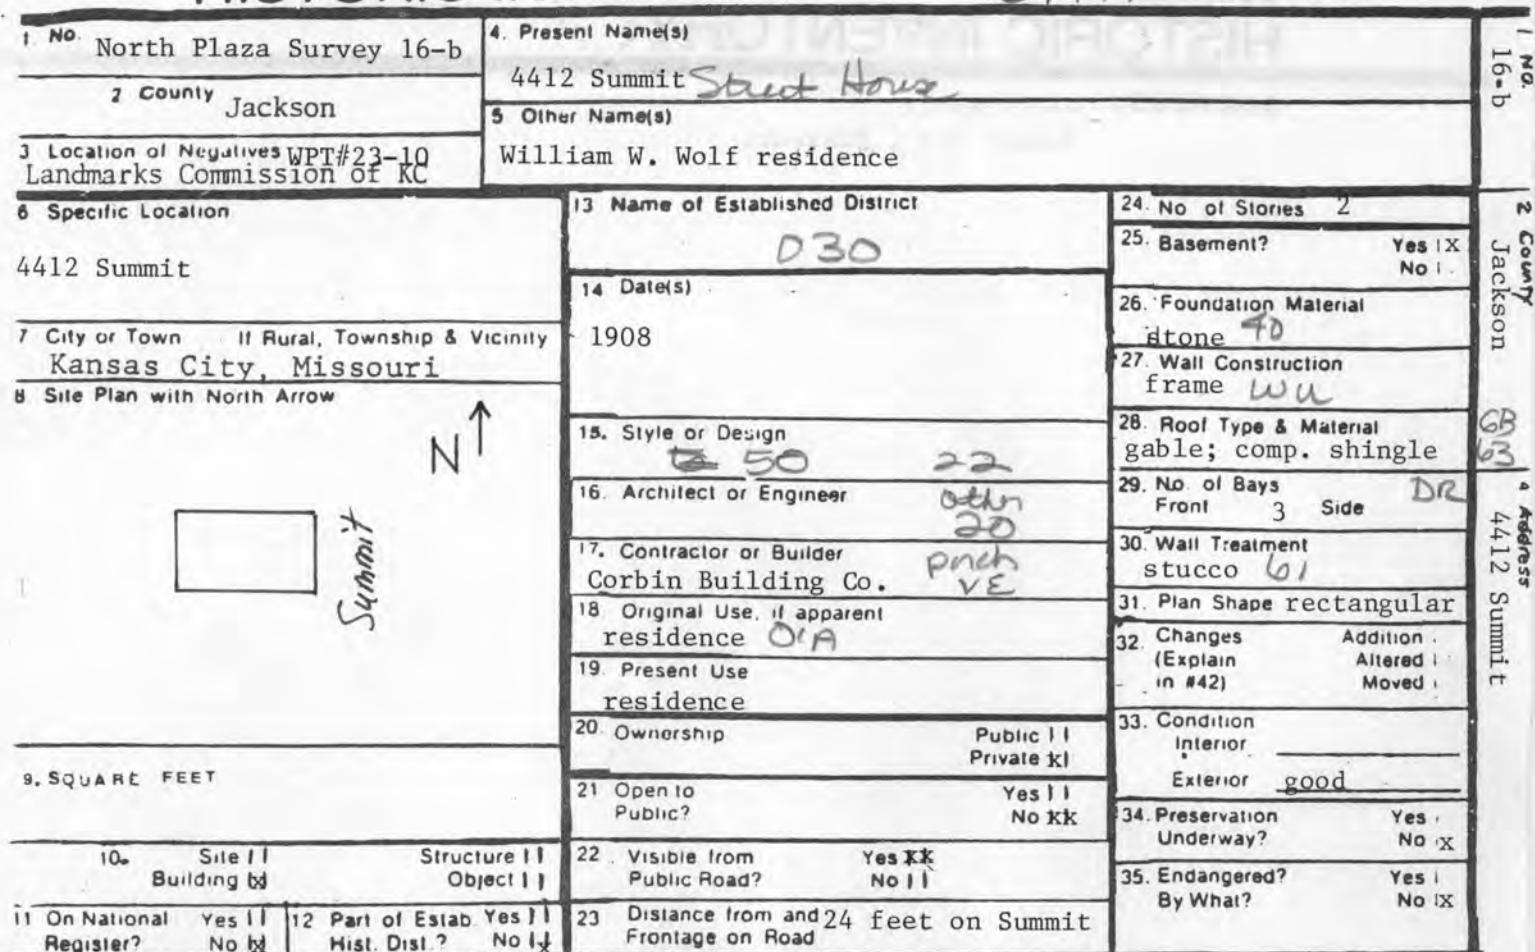 1. No. North Plaza Survey 16-b
2 County Jackson
3 Location of Negatives WPT#23-10
Landmarks Commission of KC
4. Present Name(s)
4412 Summit Street House
5 Other Name(s)
William W. Wolf residence
6 Specific Location
4412 Summit
7 City or Town If Rural, Township & Vicinity
Kansas City, Missouri
8. Site Plan with North Arrow
N
Summit
9. SQUARE FEET
10. Site Structure
Building x Object
11 On National Yes
Register? No x
12 Part of Estab. Yes
Hist. Dist.? No x
13 Name of Established District
030
14 Date(s)
1908
15. Style or Design
50 22
16. Architect or Engineer other
20
17. Contractor or Builder porch
Corbin Building Co. VE
18. Original Use, if apparent
residence 01A
19. Present Use
residence
20. Ownership Public
Private x
21 Open to Yes
Public? No xx
22. Visible from Yes xx
Public Road? No
23 Distance from and 24 feet on Summit
Frontage on Road
24. No of Stories 2
25. Basement? Yes x
No
26. Foundation Material
stone 40
27. Wall Construction
frame WU
28. Roof Type & Material
gable; comp. shingle
29. No. of Bays DR
Front 3 Side
30. Wall Treatment
stucco 61
31. Plan Shape rectangular
32. Changes Addition
(Explain Altered
in #42) Moved
33. Condition
Interior
Exterior good
34. Preservation Yes
Underway? No x
35. Endangered? Yes
By What? No x
1 No.
16-b
2 County
Jackson
GB
63
4 Address
4412 Summit